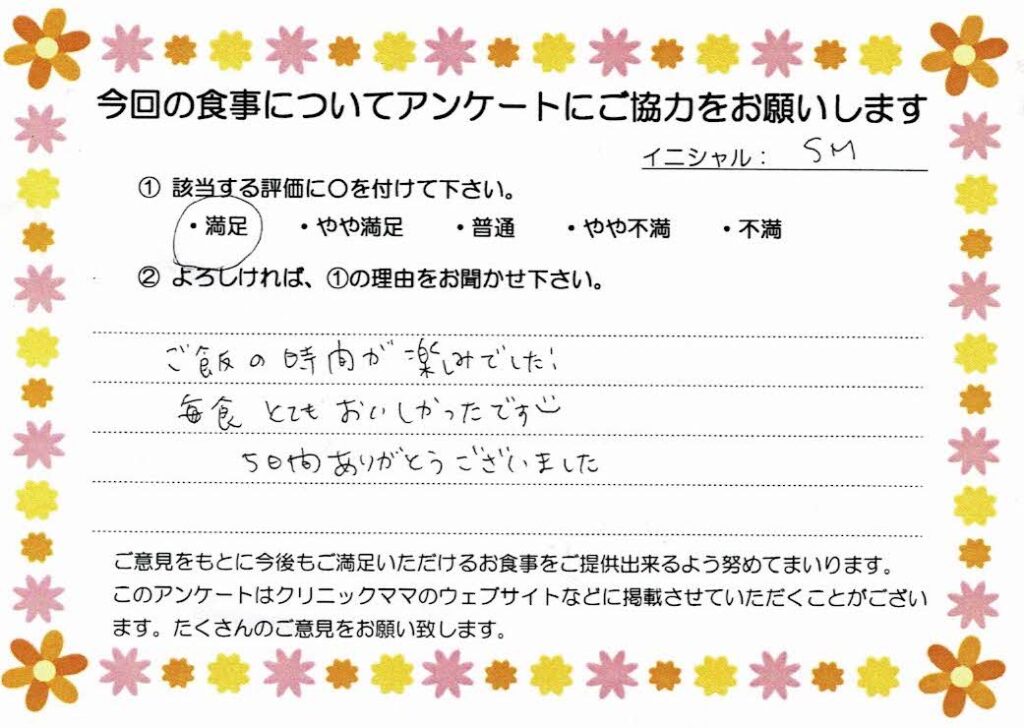 今回の食事についてアンケートにご協力をお願いします
イニシャル： SM
① 該当する評価に〇を付けて下さい。
・満足 ・やや満足 ・普通 ・やや不満 ・不満
② よろしければ、①の理由をお聞かせ下さい。
ご飯の時間が楽しみでした!
毎食とてもおいしかったです
5日間ありがとうございました
ご意見をもとに今後もご満足いただけるお食事をご提供出来るよう努めてまいります。
このアンケートはクリニックママのウェブサイトなどに掲載させていただくことがござい
ます。たくさんのご意見をお願い致します。